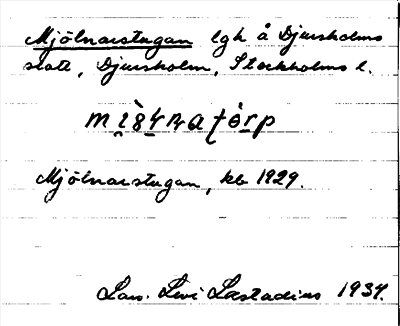 Mjölnarstugan lgh å Djursholms
slott, Djursholm, Stockholms l.
Mjölnarstugan, kb 1929.
Lars Levi Læstadius 1934.